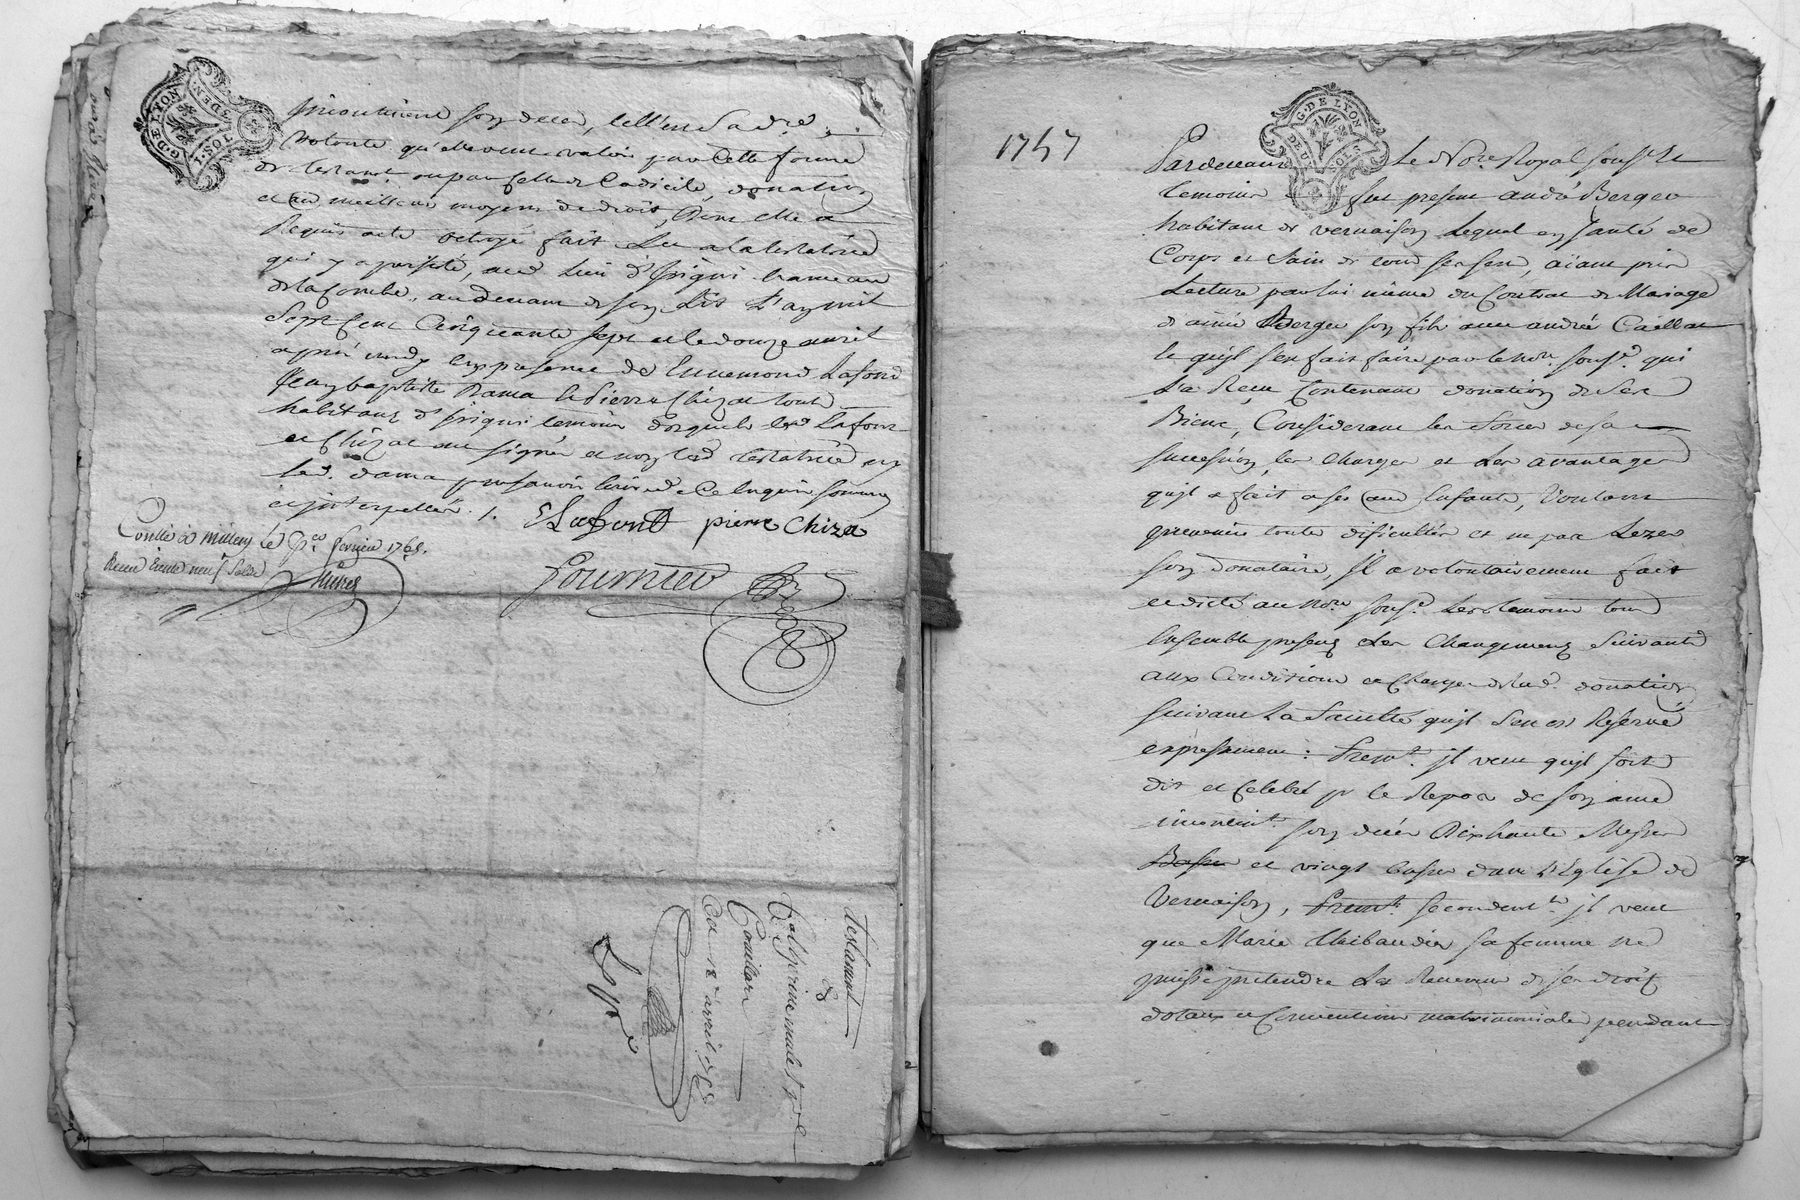 G. DE LYON
DEUX SOLS
incontinent son deces, telle est sa der.e
volonté qu'elle veut valoir par cette forme
de testamt. ou par celle de Codicile, donation
et aud. meilleur moyens de droit, Dont elle a
Requis acte octroyé fait Lu a la testatrice
qui y a persisté, aud. lieu d'Irigni hameau
de la Combe, au devant de son Lit L'an mil
Sept Cent Cinquante sept et le douze avril
après midy En presence de Ennemond Lafond
Jean baptiste Dama et Pierre Chizat tous
habitans d'Irigni temoins desquels lesd. Lafont
et Chizat ont signés et non lad. testatrice ny
led. dama pour ne savoir Ecrire de ce Enquis sommés
et interpellés ./.
ELafont pierre Chiza
Fournier
Conllé à Millery le fevrier 1765.
Recu trente neuf sols
Testament
de
Couillard
du 12 avril 1757
1757
G. DE LYON
DEUX SOLS
Pardevant Le Nore. Royal sousné. Et
temoins fut present andré Berger
habitant de vernaison Lequel en santé de
Corps et sain de tous ses sens, aïant pris
Lecture par lui même du Contrat de Mariage
d'aimé Berger son fils avec andrée Caillat
le qu'il s'en fait faire par le nore. sousé. qui
L'a Reçu Contenant donation de ses
Biens, Considerant les forces de sa
succession, les charges et Les avantages
qu'il a fait a ses aud. Enfants, Voulant
prevenir toute dificultés et ne pas Lezer
son donataire, Il a volontairement fait
et dicté au nore. sousé. Les temoins tous
Ensemble presens Les Changemens Suivants
aux Conditions et Charges de lad. donation
suivant La faculté qu'il s'en est Reservé
expressement : Premt. il veut qu'il soit
dit et Celebré pr le Repos de son ame
incontint. son décès Dix hautes Messes
Basses et vingt basses dans l'Eglise de
Vernaison, Premt. secondemt. il veut
que Marie Thibaudier sa femme ne
puisse pretendre Les Revenus de ses droits
dotaux et Conventions matrimoniales pendant